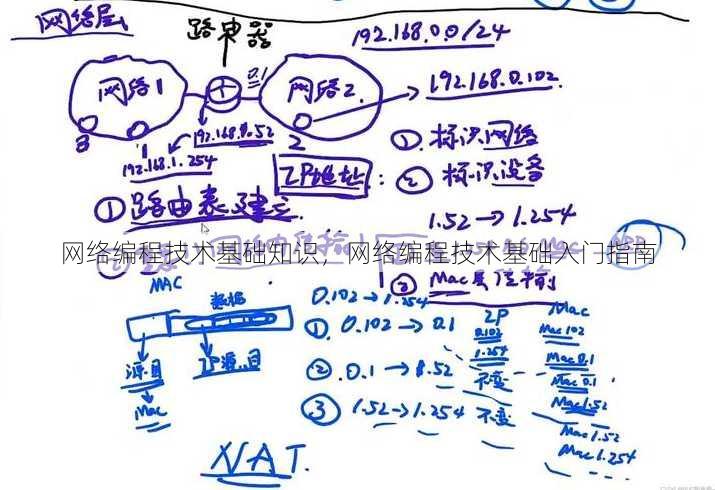 网络层
路由器
192.168.0.0/24
网络1
0.1
网络2
192.168.0.102
3
1
192.168.1.254
2
① 标识网络
IP地址: ② 标识设备
① 路由表建立
1.52→1.254
网络编程技术基础知识，网络编程技术基础入门指南
MAC
数据
③ Mac
0.102→1.254
IP
Mac
①. 0.102→0.1
0.102
1.254
Mac102
Mac0.1
源.目
IP源.目
②.0.1→
不变
Mac 0.1
Mac1.52
Mac
③ 1.52→1.254
不变
Mac1.52
Mac1.254
NAT.